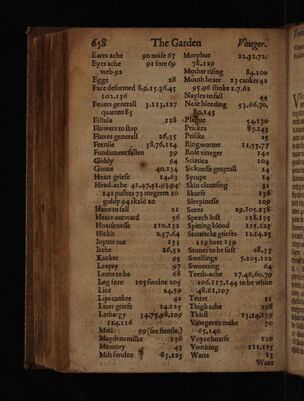 658 The Garden Vineger.
Eares ache 90 noise 67
Eyes ache 91 sore 69
web 92
Egge 28
Face deformed 8,9,15,36,45
102,136
Feuers generall 3,113,127
quartē 85
Fistula 128
Flowers to stop
Fluxes generall 26,35
Feensie 38,76,114
Fundament fallen 39
Giddy 94
Goute 40,134
Heart griefe 14,63
Head-ache
giddy 94 skald 20
Haire to fall 21
Heate outward 56
Hoarsenesse 110,132
Hickit 2,47,64
Ioynts out 133
Itche 26,52
Kanker 95
Leapry 97
Leane to be 68
Leg sore 105 swolne 105
Lice 24,59
Lipe canker 42
Liuer griefe 14,125
Lethargy 34,75,98,109
124,116
Matl 99 (see stensie.)
Maydens milke 236
Memory 45
Milt swolne 83,125
Morphue 22,32,72,
78,129
Mother rising 84,100
Mouth heate 23 canker 42
95.96 stinke 1,7,62
Nayles to fall 44
Nose bleeding 53,66,70,
80,145
Plague 54,130
Prickes 87,143
Pusłke 25
Ringworme 12,55,77
Rose vineger 140
Sciatica 104
Sicknesse generall 14
Syrupe 14
Skin cleansing 31
Skurfe 136
Sleepinesse 109
Sores 29,101,138
Speech lost 118,135
Spitting blood 115,125
Stomacke grieues 12,14,25
119 heer 139
Stones to be soft 28,33
Swellings 5,105,122
Swooning 64
Teeth-ache 27,46,60,79
106.117,144 to be white
48,61,107
Tetter 51
Thigh ache 108
Thirst 13,14,159
Vineger to make 50
65,140
Voyce hoarse 110
Vomiting 112,125
Warts 23
Waxe